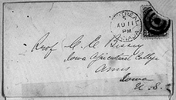 AU 11
Prof. C. E. Bessey
Iowa Agricultural College
Ames
Iowa
U. S.